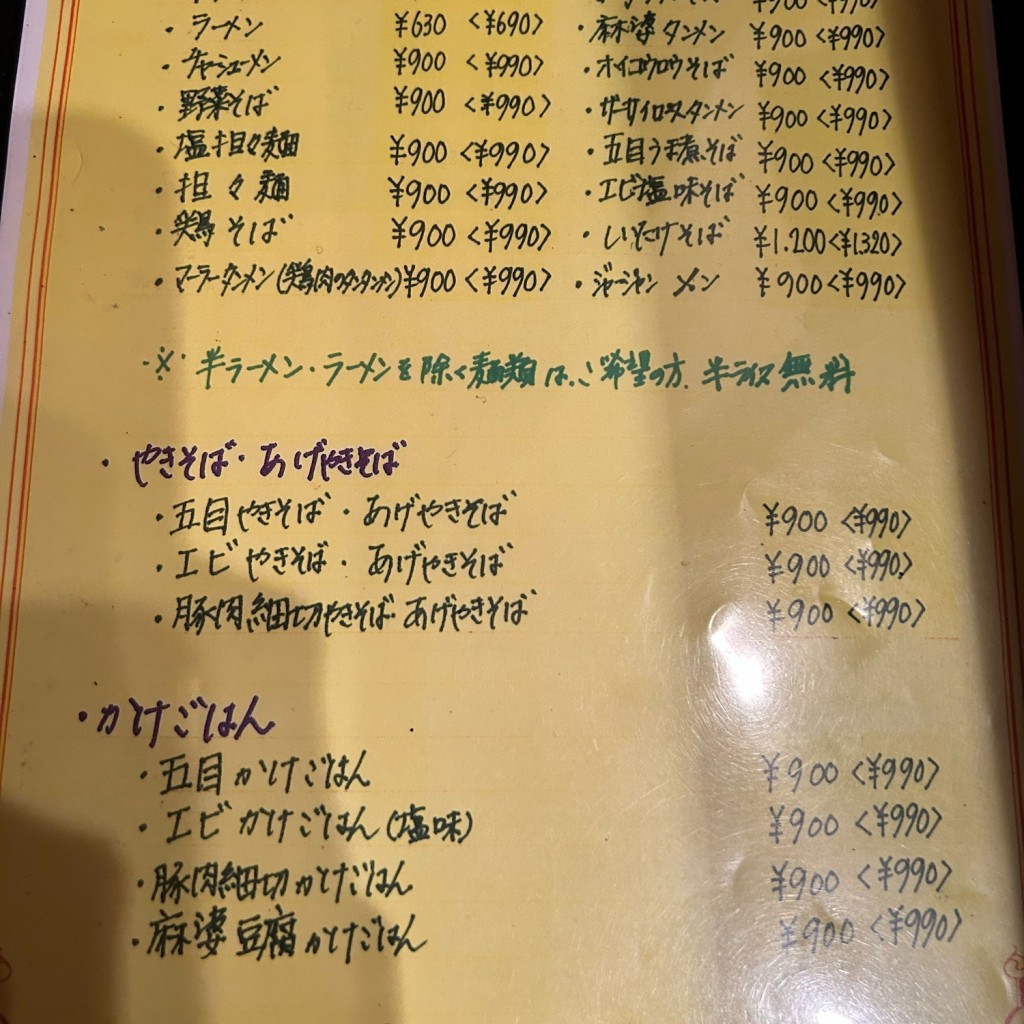 ・ラーメン ¥630 <¥690>
・チャーシューメン ¥900 <¥990>
・野菜そば ¥900 <¥990>
・塩担々麺 ¥900 <¥990>
・担々麺 ¥900 <¥990>
・鶏そば ¥900 <¥990>
・マーラータンメン(鶏肉のタンタンメン) ¥900 <¥990>
¥900 <¥990>
・麻婆タンメン ¥900 <¥990>
・ホイコウロウそば ¥900 <¥990>
・ザーサイロースタンメン ¥900 <¥990>
・五目うま煮そば ¥900 <¥990>
・エビ塩味そば ¥900 <¥990>
・しいたけそば ¥1.200 <¥1.320>
・ジャージャンメン ¥900 <¥990>
※半ラーメン・ラーメンを除く麺類は、ご希望の方、半ライス無料
・やきそば・あげやきそば
・五目やきそば・あげやきそば ¥900 <¥990>
・エビやきそば・あげやきそば ¥900 <¥990>
・豚肉細切やきそば・あげやきそば ¥900 <¥990>
・かけごはん
・五目かけごはん ¥900 <¥990>
・エビかけごはん(塩味) ¥900 <¥990>
・豚肉細切かけごはん ¥900 <¥990>
・麻婆豆腐かけごはん ¥900 <¥990>